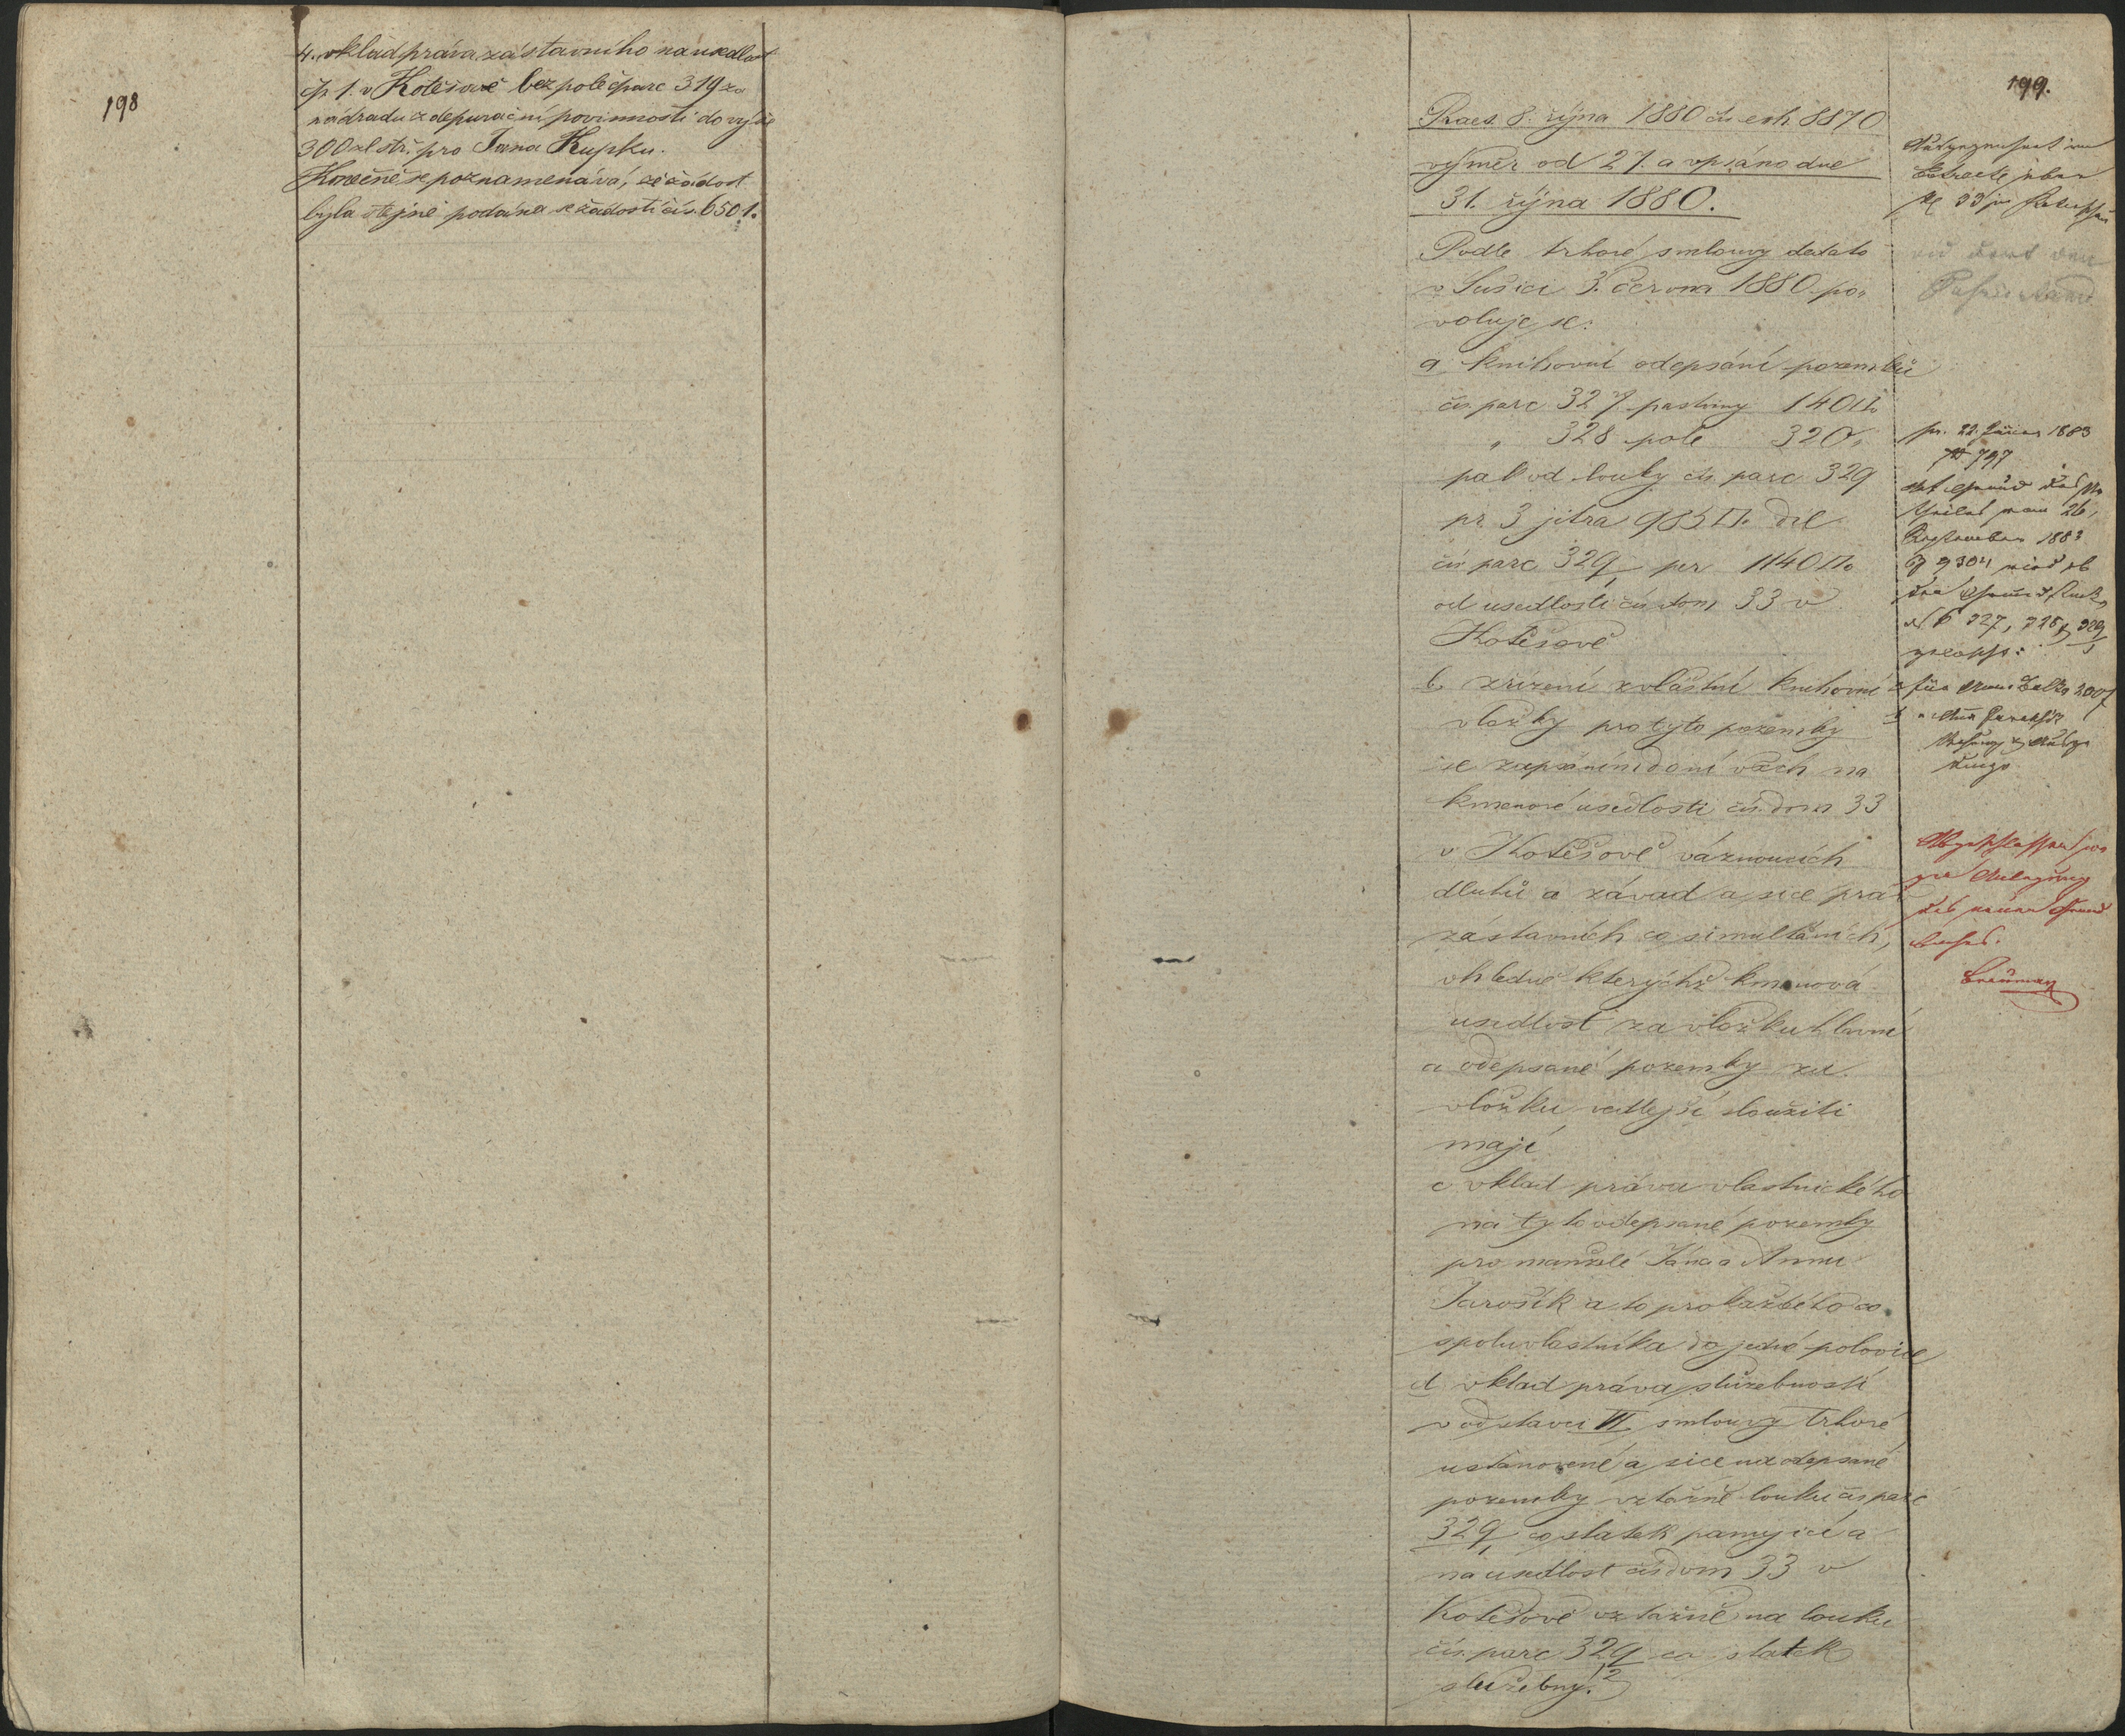 198
4. vklad práva zástavního na usedlost
čp. 1. v Kotěšově bez pole čparc 319 za
náhradu z depurační povinnosti do výše
300 zl. stř. pro Jana Kupku.
Konečně se poznamenává, že žádost
byla stejně podána se žádostí čís. 6501.
199.
Praes 8. října 1880 čís exh 8870
výměr od 27. a vpsáno dne
31. října 1880.
Podle trhové smlouvy dedato
v Sušici 3. června 1880 po„
voluje se:
a knihovní odepsání pozemků
čís. parc 327 pastviny 140□°
„ 328 pole 320„
pak od louky čís parc 329
pr 3 jitra 985□° díl
čís parc 329/1 per 1140□°
od usedlosti čís dom 33 v
Kotěšově
b. zřízení zvláštní knihovní
vložky pro tyto pozemky
se zapsáním do ní všech na
kmenové usedlosti čís. dom 33
v Kotěšově váznoucích
dluhů a závad a sice práv
zástavních co simultáních,
ohledně kterýchž kmenová
usedlost za vložku hlavní
a odepsané pozemky za
vložku vedlejší sloužiti
mají
c vklad práva vlastnického
na tyto odepsané pozemky
pro manžele Jána a Annu
Jarošík a to pro každého co
spoluvlastníka do jedné polovice
d vklad práva služebnosti
v odstavci VI. smlouvy trhové
ustanovené a sice na odepsané
pozemky vztažně louku čís parc
329/1 co statek panující a
na usedlost čís dom 33 v
Kotěšově vztažně na louku
čís. parc 329/2 co statek
služebný.
pr. 22. Jänner 1883
№ 797
September 1883
327, 328, 329/1
Abgeschlossen
zur Anlegung
des neuen Grund
buches.